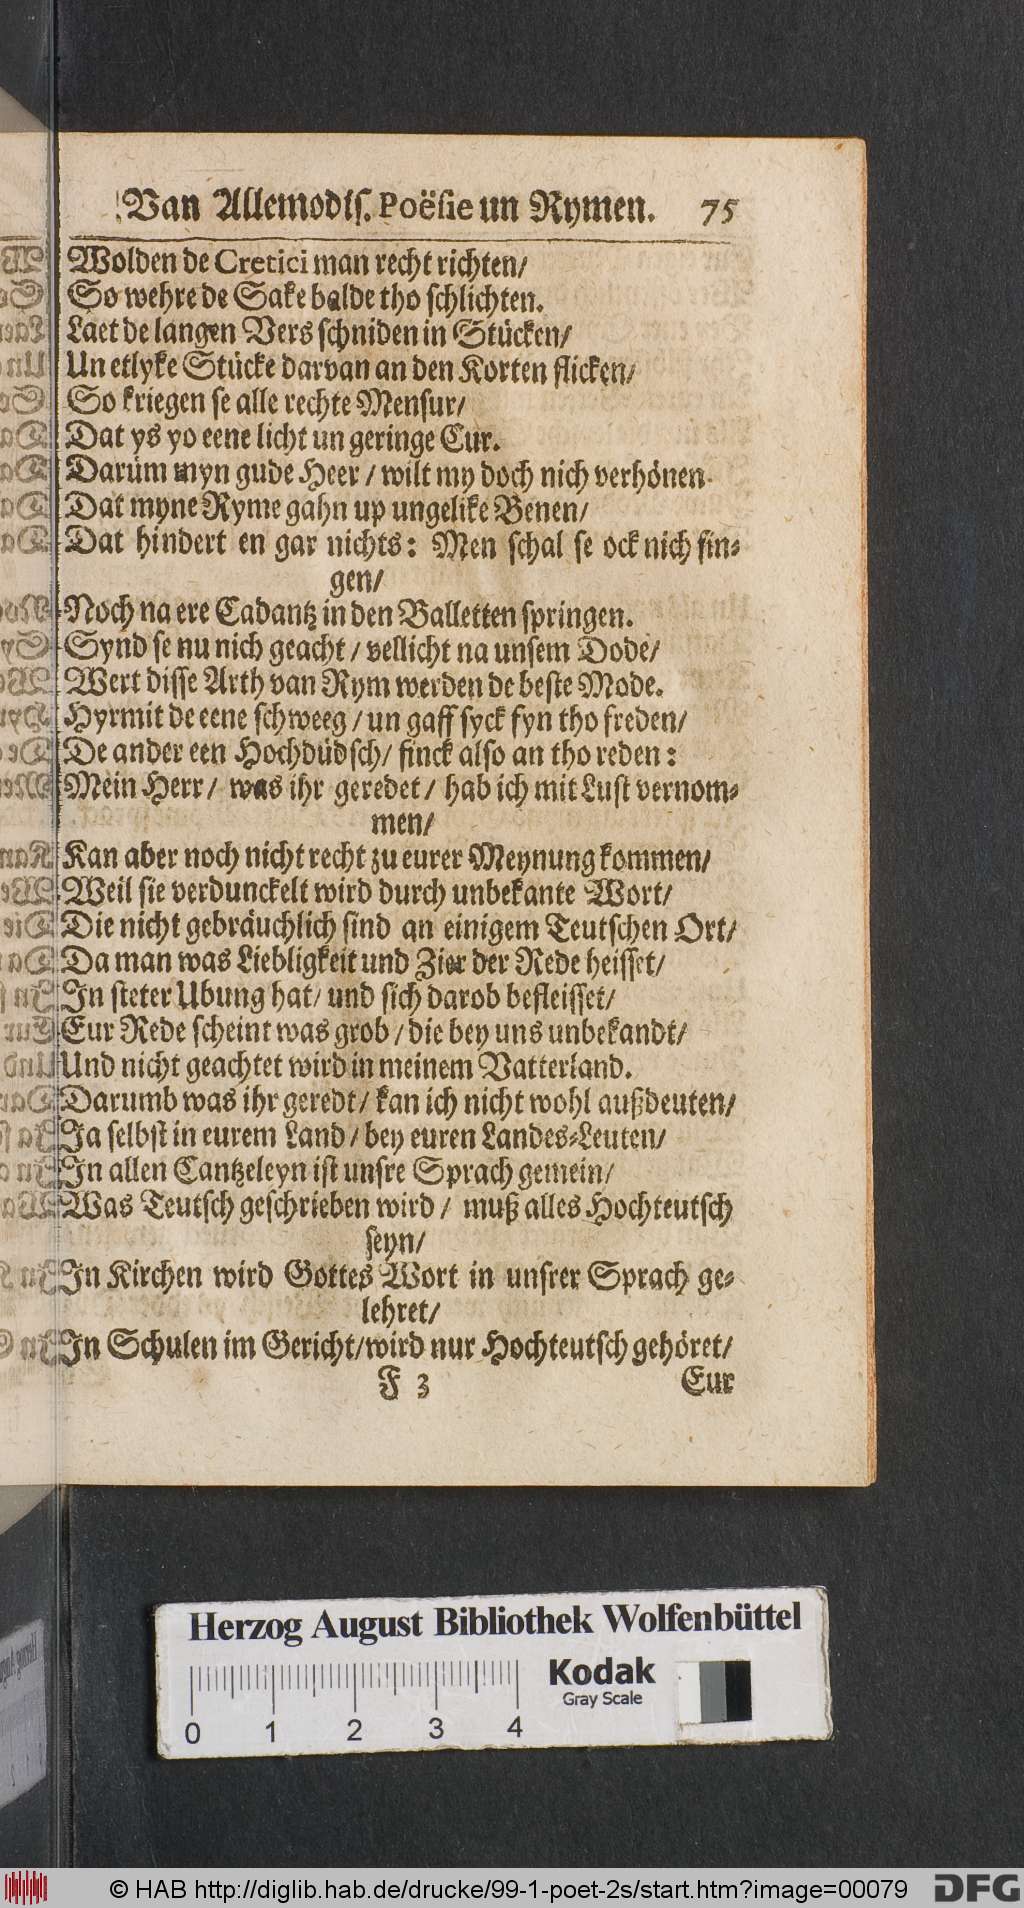 Van Allemodis. Poësie un Rymen. 75
Wolden de Cretici man recht richten/
So wehre de Sake balde tho schlichten.
Laet de langen Vers schniden in Stücken/
Un etlyke Stücke darvan an den Korten flicken/
So kriegen se alle rechte Mensur/
Dat ys yo eene licht un geringe Cur.
Darüm myn gude Heer / wilt my doch nich verhönen
Dat myne Ryme gahn up ungelike Benen/
Dat hindert en gar nichts: Men schal se ock nich sin-
gen/
Noch na ere Cadantz in den Balletten springen.
Synd se nu nich geacht / vellicht na unsem Dode/
Wert disse Arth van Rym werden de beste Mode.
Hyrmit de eene schweeg / un gaff syck fyn tho freden/
De ander een Hochdüdsch/ finck also an tho reden:
Mein Herr / was ihr geredet / hab ich mit Lust vernom-
men/
Kan aber noch nicht recht zu eurer Meynung kommen/
Weil sie verdunckelt wird durch unbekante Wort/
Die nicht gebräuchlich sind an einigem Teutschen Ort/
Da man was Liebligkeit und Zier der Rede heisset/
In steter Ubung hat/ und sich darob befleisset/
Eur Rede scheint was grob / die bey uns unbekandt/
Und nicht geachtet wird in meinem Vatterland.
Darumb was ihr geredt / kan ich nicht wohl außdeuten/
Ja selbst in eurem Land / bey euren Landes-Leuten/
In allen Cantzeleyn ist unsre Sprach gemein/
Was Teutsch geschrieben wird / muß alles Hochteutsch
seyn/
In Kirchen wird Gottes Wort in unsrer Sprach ge-
lehret/
In Schulen im Gericht/wird nur Hochteutsch gehöret/
F 3 Eur
Herzog August Bibliothek Wolfenbüttel
Kodak
Gray Scale
0 1 2 3 4
© HAB http://diglib.hab.de/drucke/99-1-poet-2s/start.htm?image=00079 DFG